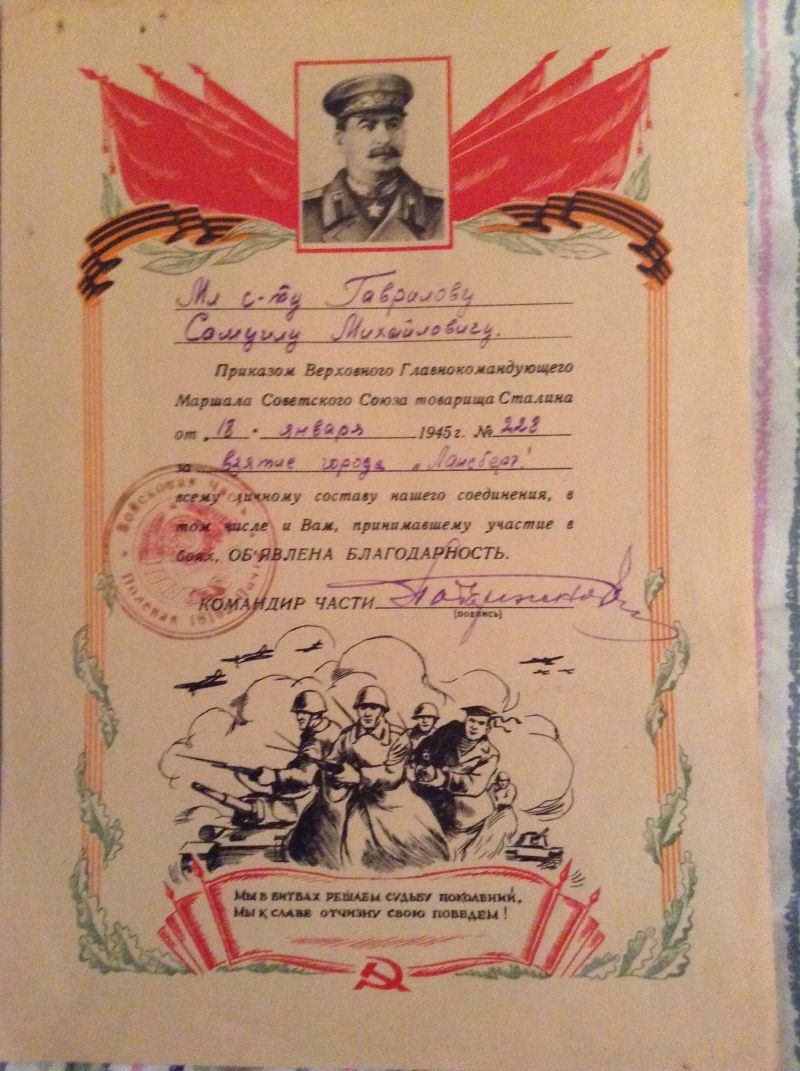 Мл с-ту Гаврилову
Самуилу Михайловичу.
Приказом Верховного Главнокомандующего
Маршала Советского Союза товарища Сталина
от „18" января 1945 г. № 228
за взятие города „Лансберг"
всему личному составу нашего соединения, в
том числе и Вам, принимавшему участие в
боях, ОБ'ЯВЛЕНА БЛАГОДАРНОСТЬ.
КОМАНДИР ЧАСТИ
(подпись)
Войсковая Часть
Полевая Почта
Мы в битвах решаем судьбу поколений,
Мы к славе отчизну свою поведем!